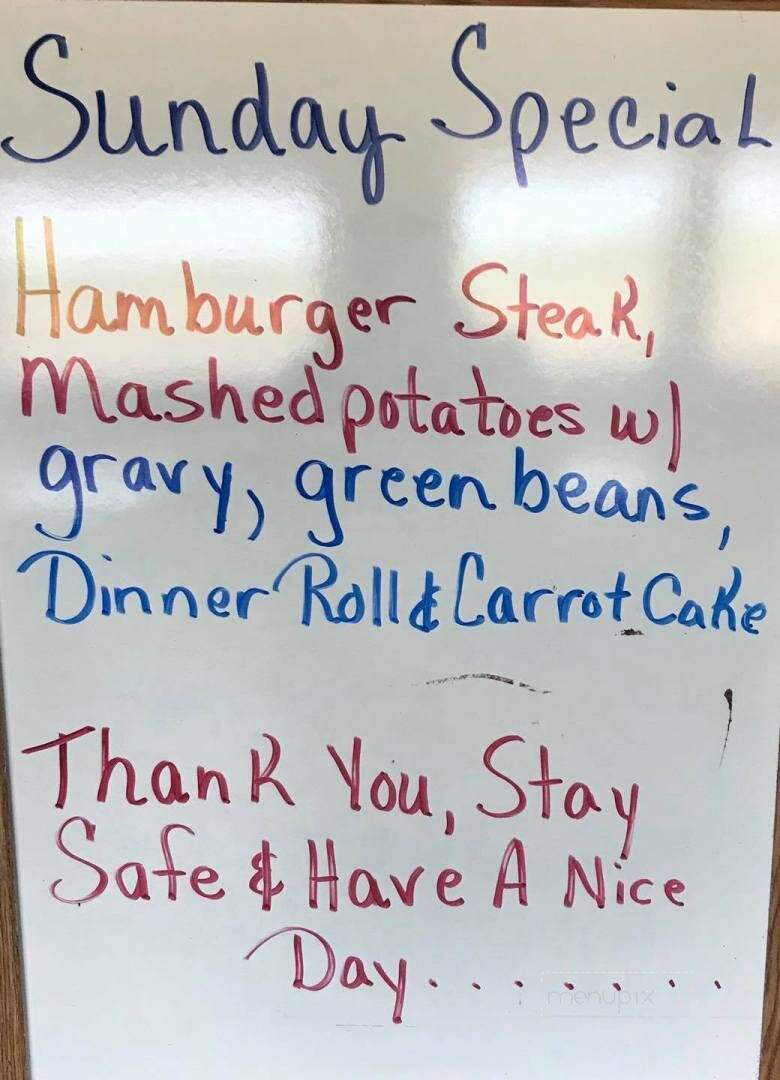 Sunday Special
Hamburger Steak,
Mashed potatoes w/
gravy, green beans,
Dinner Roll & Carrot Cake
Thank You, Stay
Safe & Have A Nice
Day........
menupix